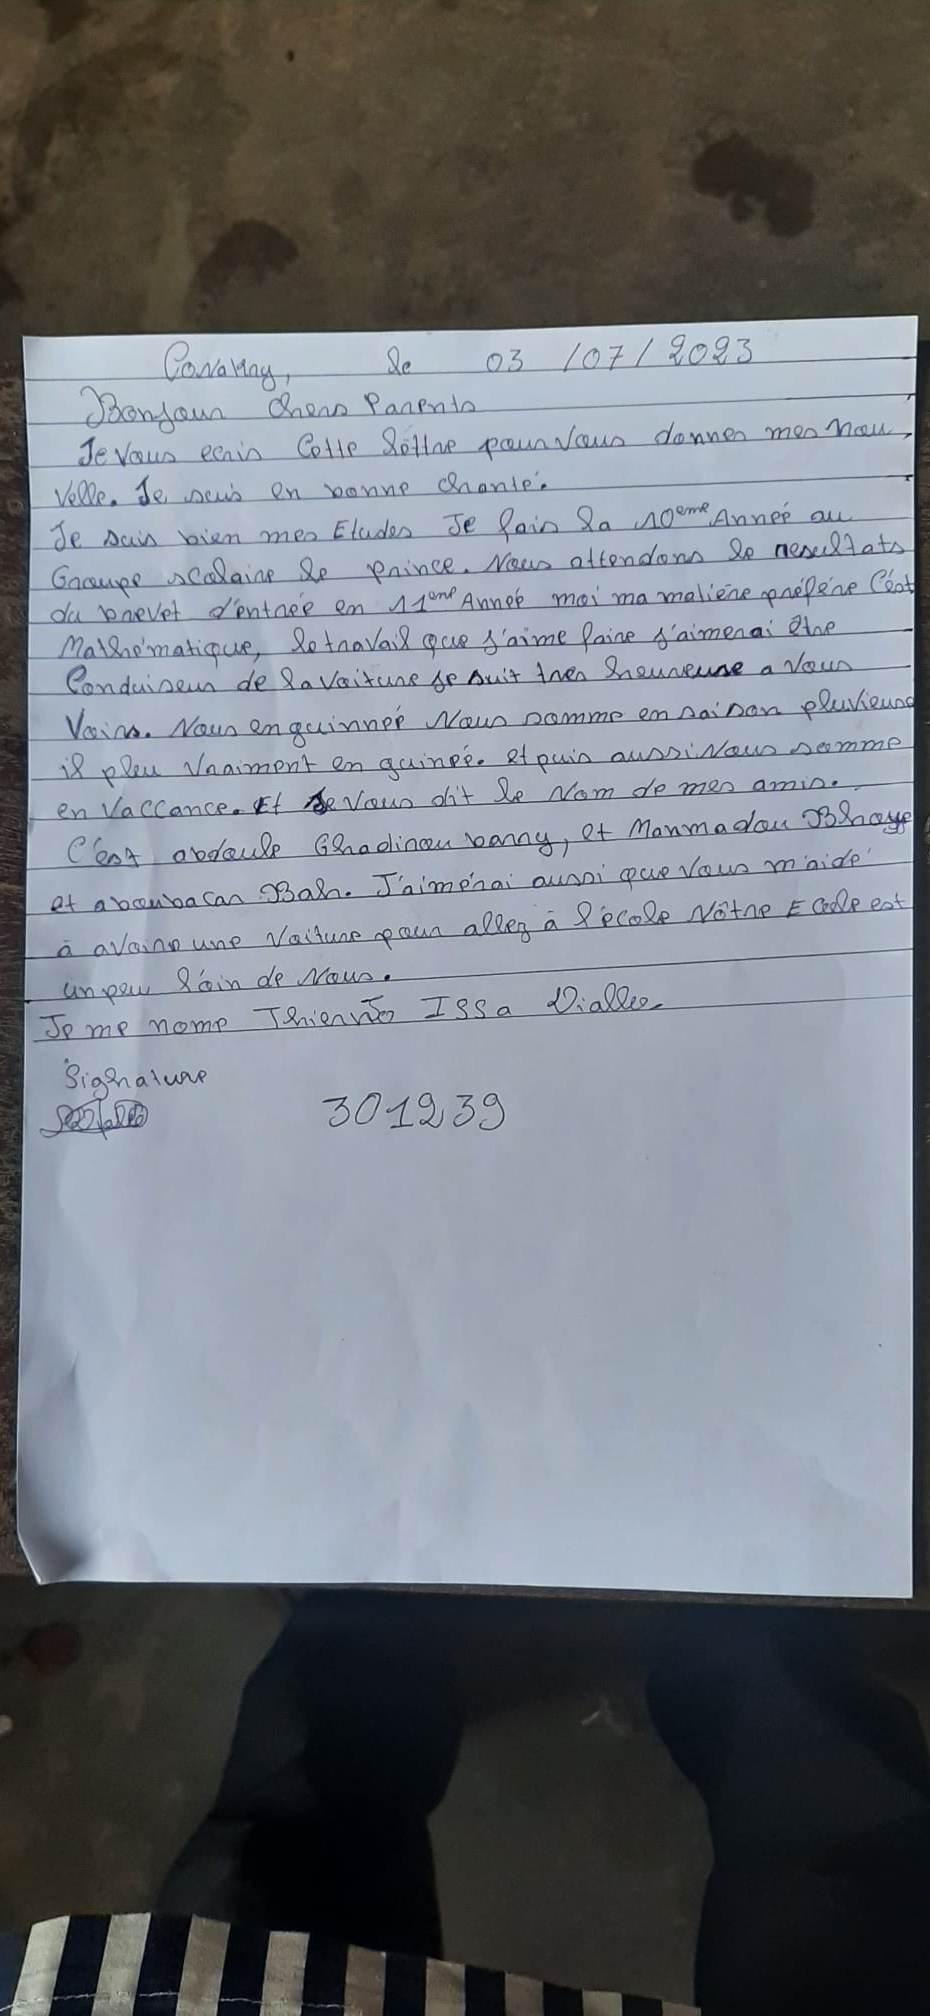 Conakry, le 03/07/2023
Bonjour chers Parents
Je Vous ecris Cette lettre pour Vous donner mes nou
velle. Je suis en bonne chanté.
Je suis bien mes Etudes Je fais la 10eme Année au
Groupe scolaire le prince. Nous attendons le resultats
du brevet d'entrée en 11eme Année moi ma matière préfère C'est
Mathématique, le travail que j'aime faire j'aimerai être
Conduiseur de la voiture je suit tres heureuse a Vous
Voirs. Nous en guinneé Nous somme en saison pluvieuse
il pleu Vraiment en guineé. et puis aussi Nous somme
en Vaccance. Et Je Vous dit le Nom de mes amis.
C'est abdoule Ghadirou barry, et Manmadou Bhoye
et aboubacar Bah. J'aimérai aussi que Vous m'aidé
à avoire une Voiture pour allez à l'école Nôtre Ecole est
un peu l'oin de Nous.
Je me nome Thierno Issa Diallo.
Signature
301239